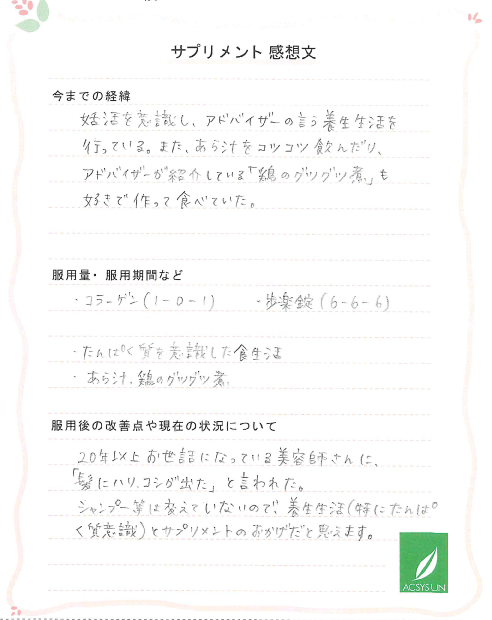 サプリメント 感想文
今までの経緯
妊活を意識し、アドバイザーの言う養生生活を
行っている。また、あら汁をコツコツ飲んだり、
アドバイザーが紹介している「鶏のグツグツ煮」も
好きで作って食べていた。
服用量・服用期間など
・コラーゲン(1-0-1) ・歩楽錠(6-6-6)
・たんぱく質を意識した食生活
・あら汁、鶏のグツグツ煮
服用後の改善点や現在の状況について
20年以上お世話になっている美容師さんに、
「髪にハリ、コシが出た」と言われた。
シャンプー等は変えていないので、養生生活(特にたんぱ
く質意識)とサプリメントのおかげだと思えます。
ACSYS UN